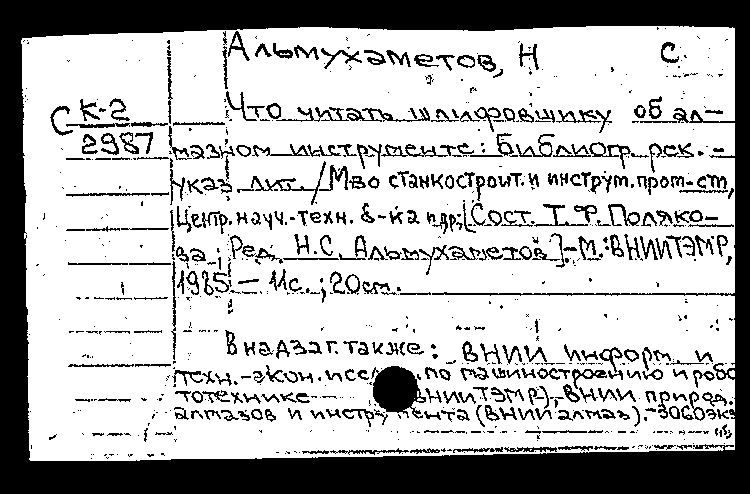 Альмухаметов, Н С.
С К-2
2987
Что читать шлифовщику об ал-
мазном инструменте: Библиогр. рек. -
указ. лит. / М-во станкостроит. и инструм. пром-сти,
Центр. науч.-техн. б-ка и др.; [Сост. Т. Ф. Поляко-
ва; Ред. Н.С. Альмухаметов]. - М.: ВНИИТЭМР,
1985 - 11с. ; 20см.
В надзаг. также: ВНИИ информ. и
техн.-экон. иссл. по машиностроению и робо
тотехнике (ВНИИТЭМР), ВНИИ природ.
алмазов и инструмента (ВНИИалмаз). - 3060экз